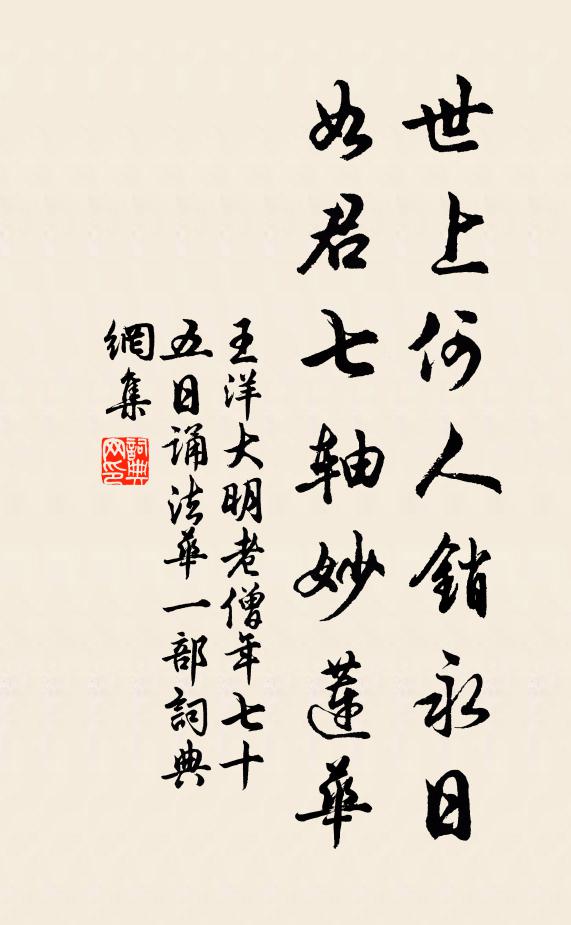 世上何人銷永日
如君七軸妙蓮華
王洋大明老僧年七十
五日誦法華一部詞典
網集
詞典網印